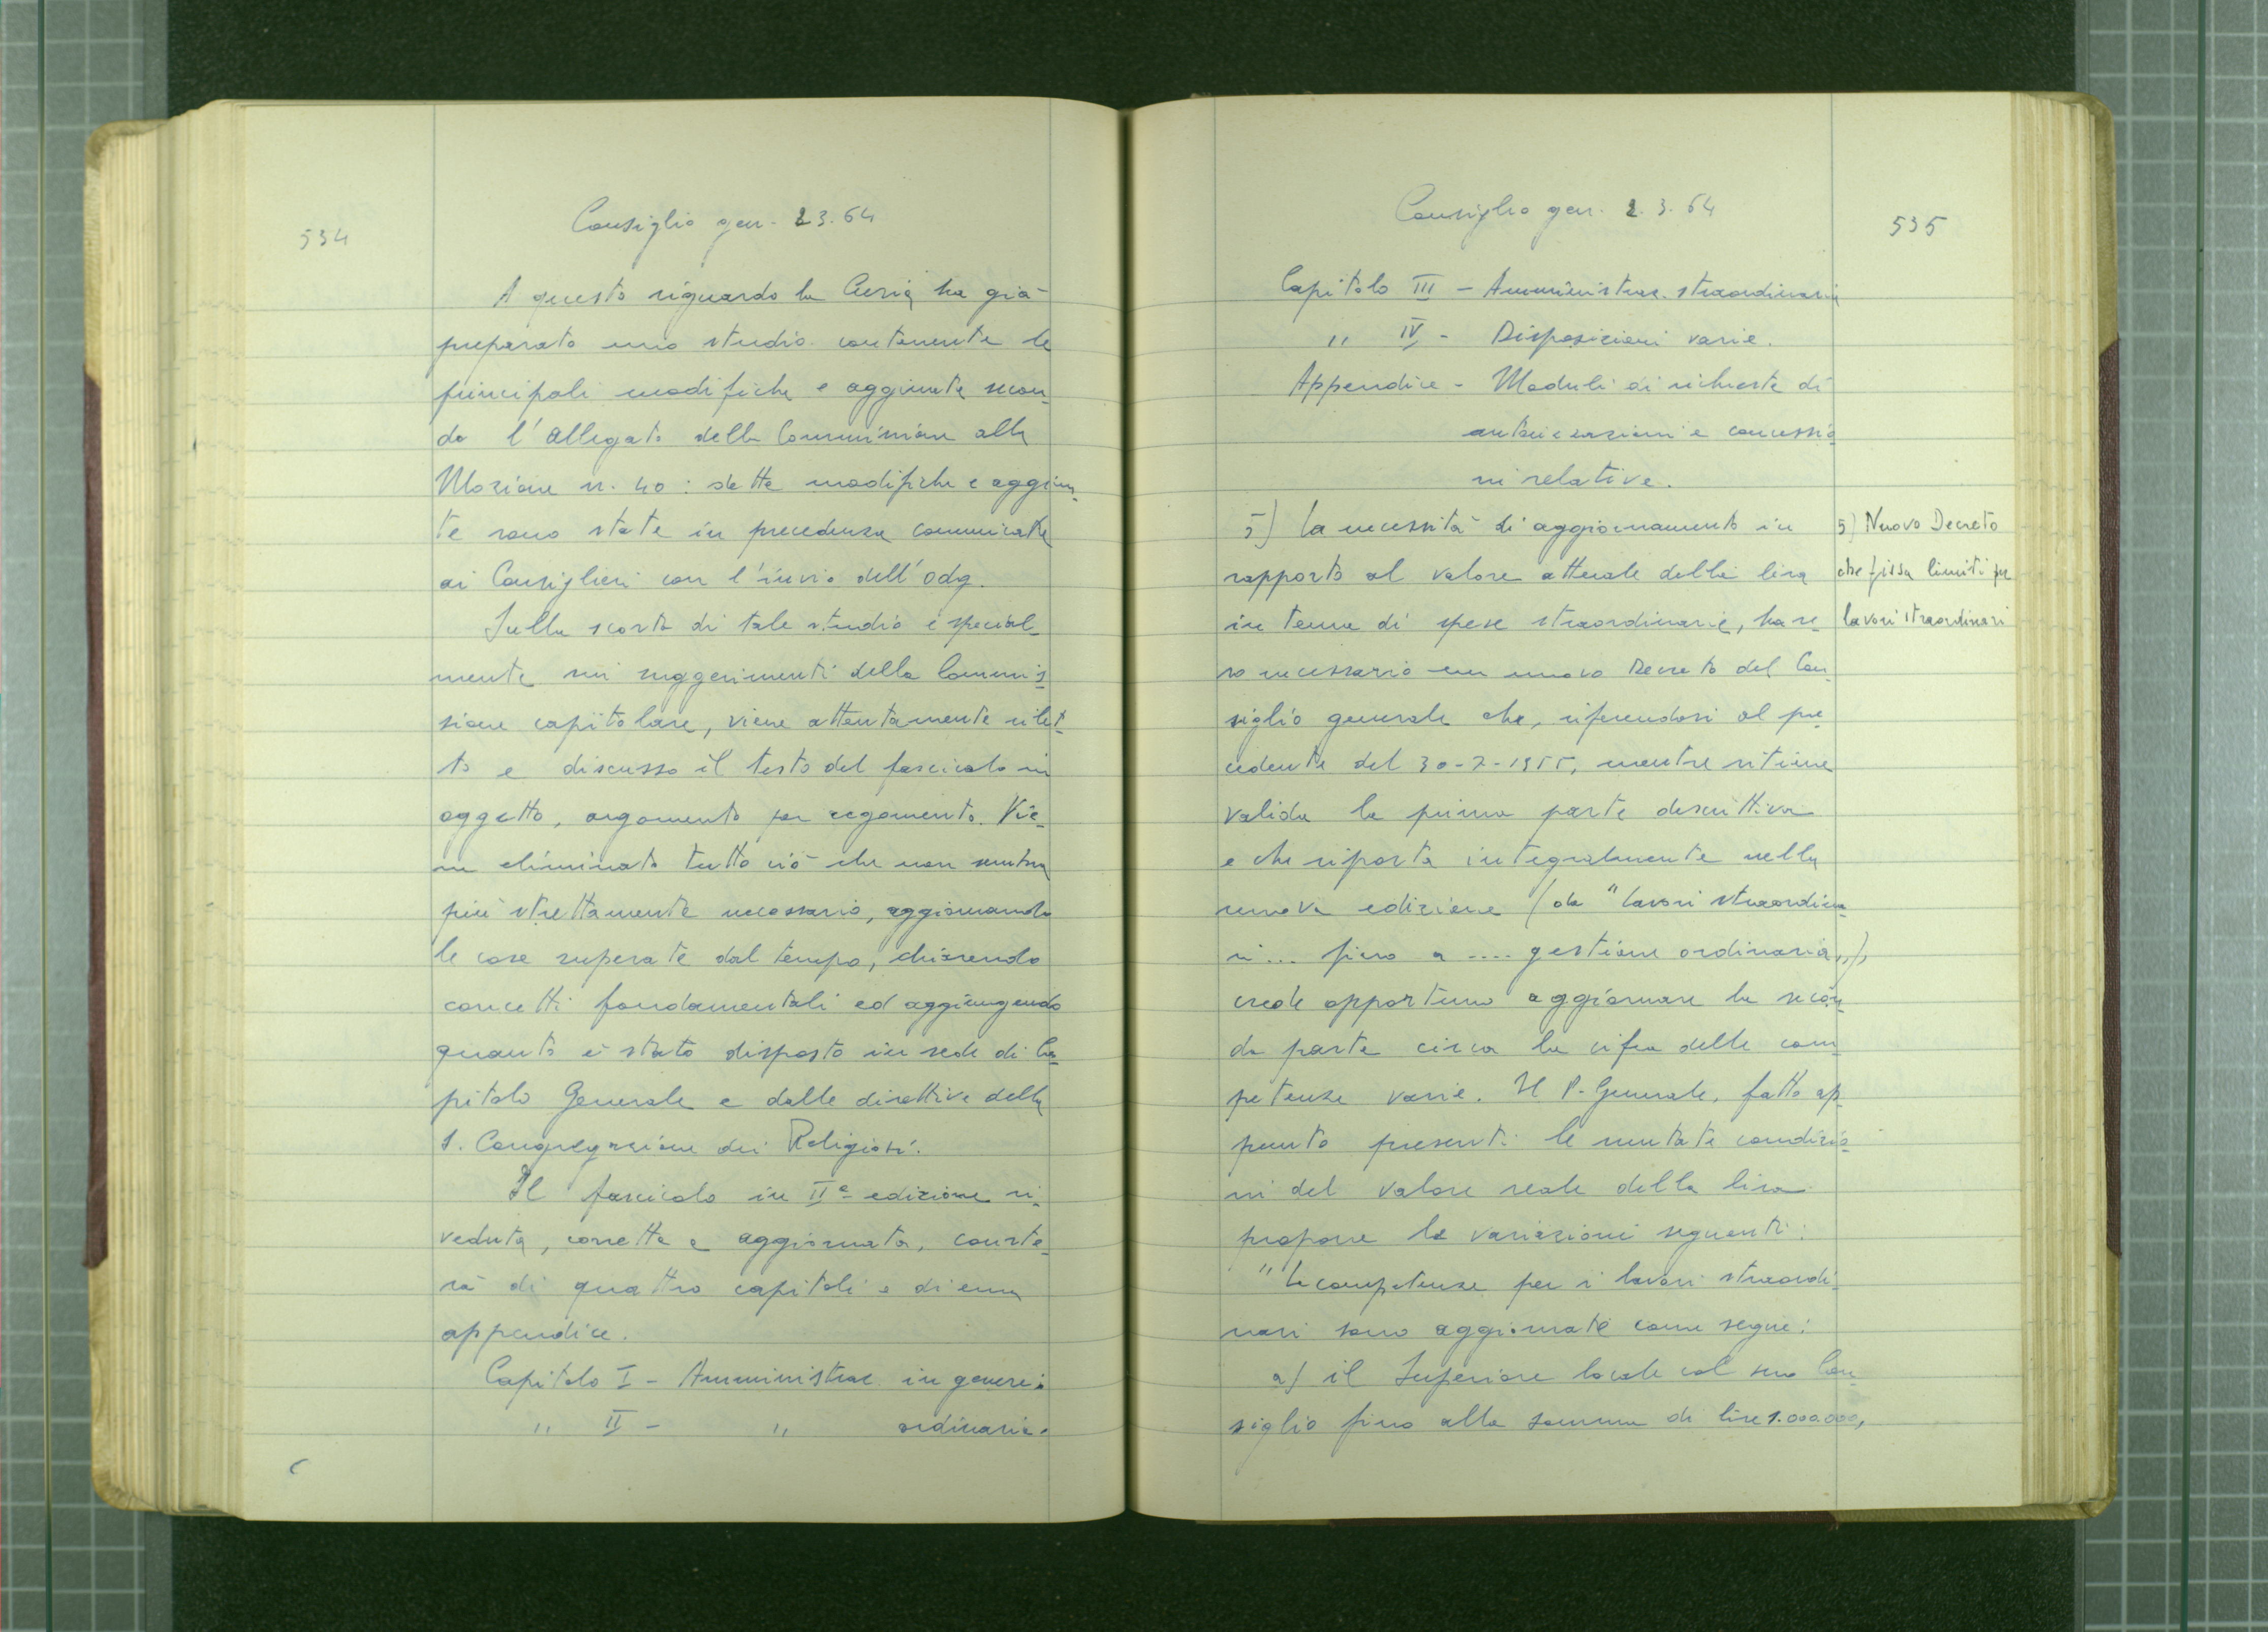 534
Consiglio gen. 2.3.64
A questo riguardo la Curia ha già
preparato uno studio contenente le
principali modifiche e aggiunte secon-
do l'allegato della Commissione alla
Mozione n. 40: dette modifiche e aggiun-
te sono state in precedenza comunicate
ai Consiglieri con l'invio dell'odg.
Sulla scorta di tale studio e special-
mente sui suggerimenti della Commis-
sione capitolare, viene attentamente rilet-
to e discusso il testo del fascicolo in
oggetto, argomento per argomento. Vie-
ne eliminato tutto ciò che non sembra
più strettamente necessario, aggiornando
le cose superate dal tempo, chiarendo
concetti fondamentali ed aggiungendo
quanto è stato disposto in sede di Ca-
pitolo Generale e dalle direttive della
S. Congregazione dei Religiosi.
Il fascicolo in IIª edizione ri-
veduta, corretta e aggiornata, conste-
rà di quattro capitoli e di una
appendice.
Capitolo I - Amministraz. in genere.
" II - " ordinaria.
Consiglio gen. 2.3.64
535
Capitolo III - Amministraz. straordinaria
" IV - Disposizioni varie.
Appendice - Moduli di richieste di
autorizzazioni e concessio-
ni relative.
5) La necessità di aggiornamento in
rapporto al valore attuale della lira
in tema di spese straordinarie, ha re-
so necessario un nuovo Decreto del Con-
siglio generale che, riferendosi al pre-
cedente del 30-7-1955, mentre ritiene
valida la prima parte descrittiva
e che riporta integralmente nella
nuova edizione (da "lavori straordina-
ri... fino a .... gestione ordinaria,,),
crede opportuno aggiornare la secon-
da parte circa la cifra delle com-
petenze varie. Il P. Generale, fatto ap-
punto presenti le mutate condizio-
ni del valore reale della lira
propone le variazioni seguenti:
"Le competenze per i lavori straordi-
nari sono aggiornate come segue:
a) il Superiore locale col suo Con-
siglio fino alla somma di lire 1.000.000,
5) Nuovo Decreto
che fissa limiti per
lavori straordinari